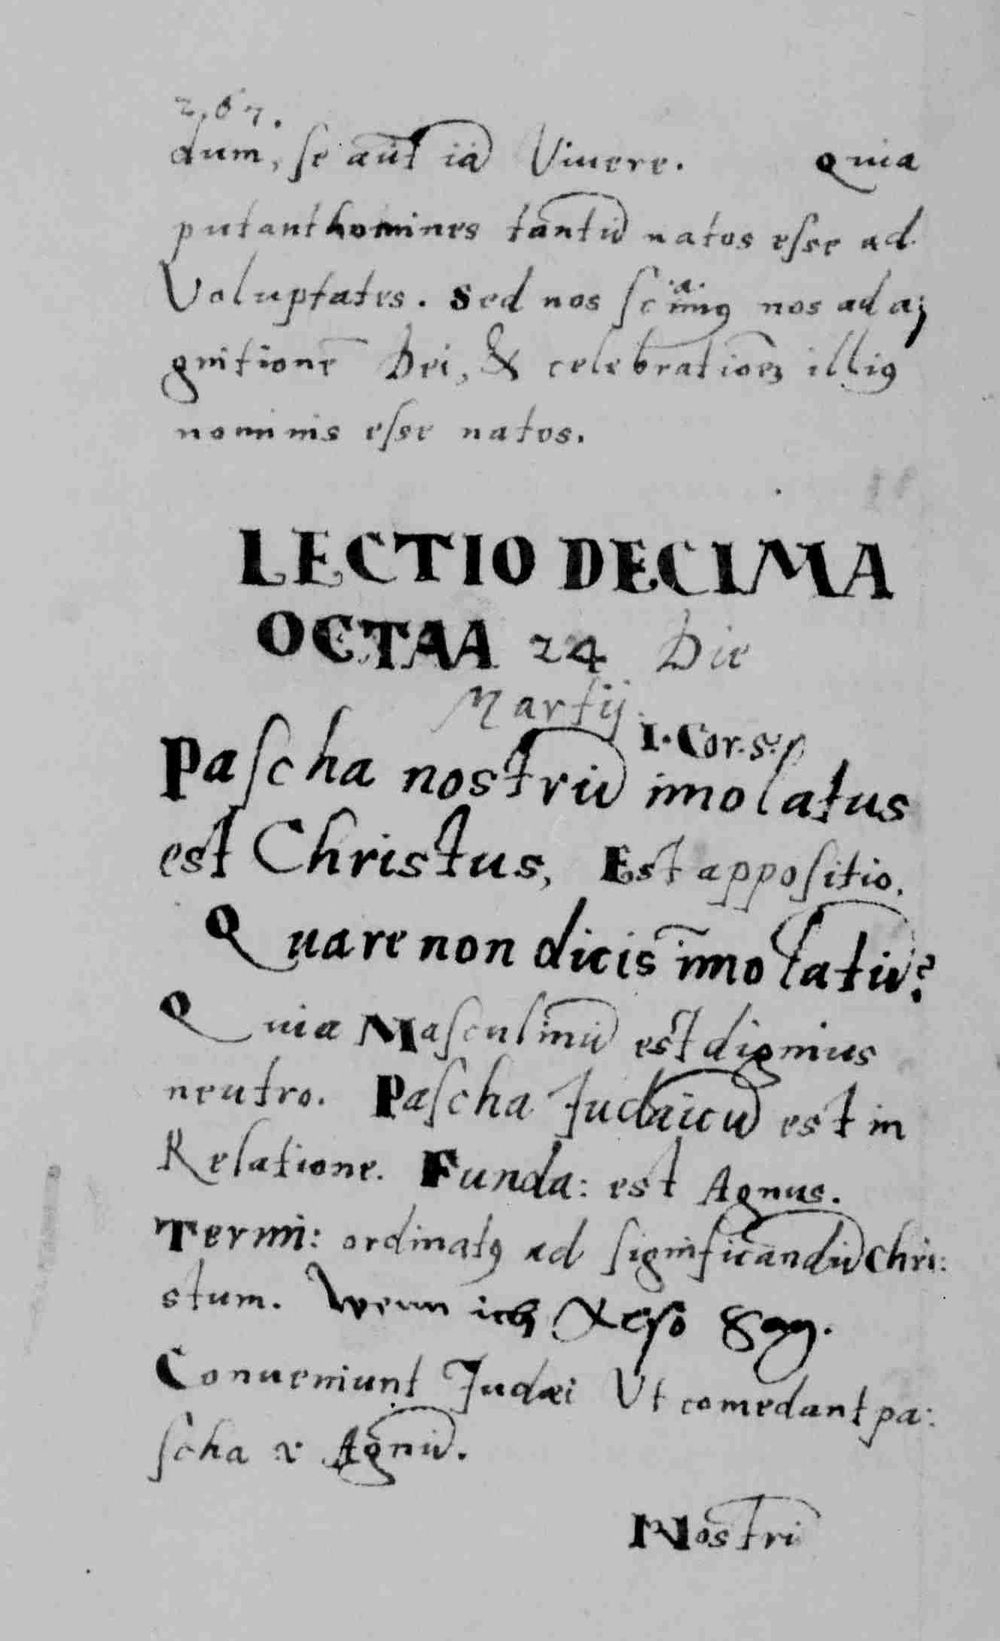 267.
dum, se aūt iā Viuere. Quia
putant homines tantū natos esse ad
Voluptates. Sed nos scimꝰ nos ad a:
gnitionē Dei, & celebrationē illiꝰ
nominis esse natos.
LECTIO DECIMA
OCTAA 24 Die
Martij
I. Cor. 5.
Pascha nostrū imolatus
est Christus, Est appositio.
Quare non dicis im̄olatū?
Quia Masculinū est dignius
neutro. Pascha Judaicū est in
Relatione. Funda: est Agnus.
Termi: ordinatꝰ ad significandū Chri:
stum. Wenn ich also sag.
Conueniunt Judæi Ut comedant pa:
scha Agnū.
Nostrū